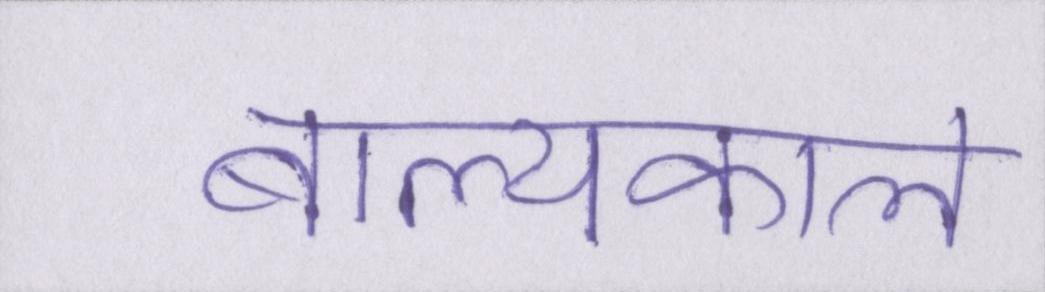 बाल्यकाल